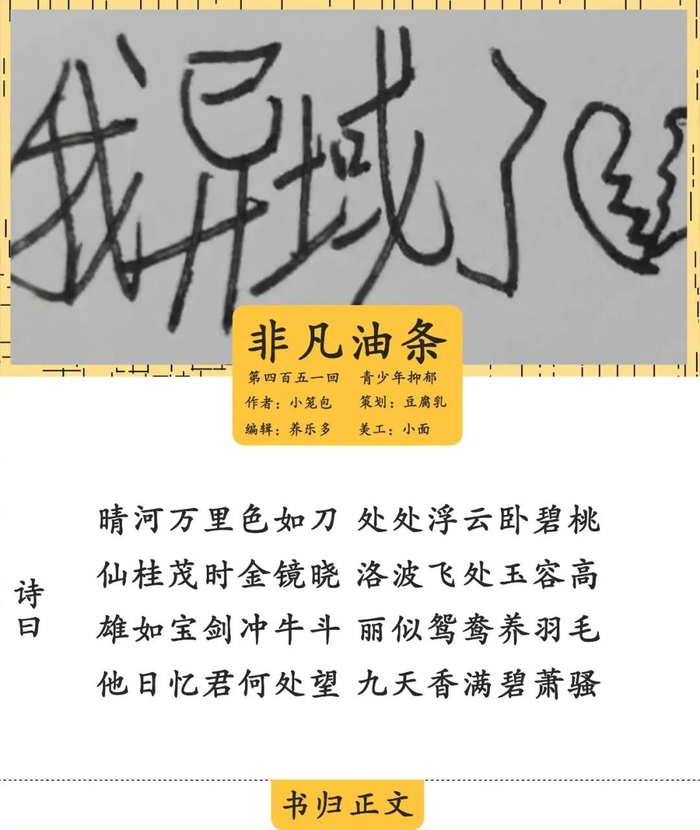 我异域了
非凡油条
第四百五一回 青少年抑郁
作者：小笼包 策划：豆腐乳
编辑：养乐多 美工：小面
诗曰
晴河万里色如刀 处处浮云卧碧桃
仙桂茂时金镜晓 洛波飞处玉容高
雄如宝剑冲牛斗 丽似鸳鸯养羽毛
他日忆君何处望 九天香满碧萧骚
书归正文